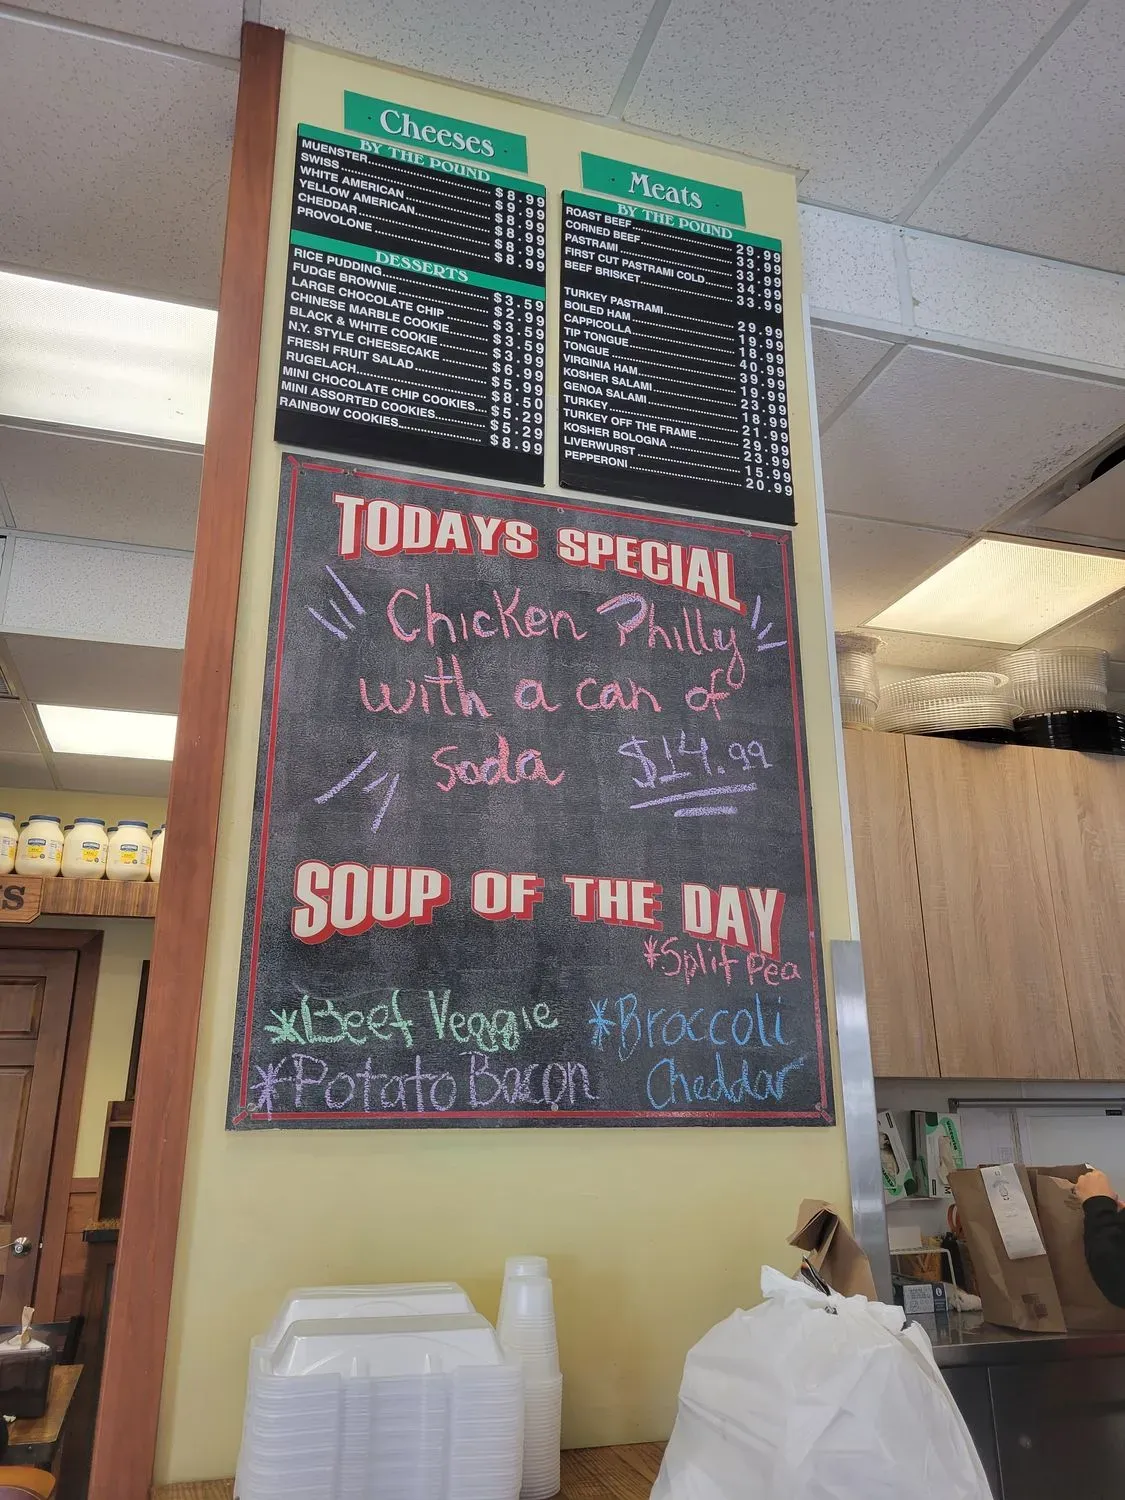 Cheeses
BY THE POUND
MUENSTER $8.99
SWISS $9.99
WHITE AMERICAN $8.99
YELLOW AMERICAN $8.99
CHEDDAR $8.99
PROVOLONE $8.99
DESSERTS
RICE PUDDING $3.59
FUDGE BROWNIE $2.99
LARGE CHOCOLATE CHIP $3.59
CHINESE MARBLE COOKIE $3.59
BLACK & WHITE COOKIE $3.99
N.Y. STYLE CHEESECAKE $6.99
FRESH FRUIT SALAD $5.99
RUGELACH $8.50
MINI CHOCOLATE CHIP COOKIES $5.29
MINI ASSORTED COOKIES $5.29
RAINBOW COOKIES $8.99
Meats
BY THE POUND
ROAST BEEF 29.99
CORNED BEEF 33.99
PASTRAMI 33.99
FIRST CUT PASTRAMI COLD 34.99
BEEF BRISKET 33.99
TURKEY PASTRAMI 29.99
BOILED HAM 19.99
CAPPICOLLA 18.99
TIP TONGUE 40.99
TONGUE 39.99
VIRGINIA HAM 19.99
KOSHER SALAMI 23.99
GENOA SALAMI 18.99
TURKEY 21.99
TURKEY OFF THE FRAME 29.99
KOSHER BOLOGNA 23.99
LIVERWURST 15.99
PEPPERONI 20.99
TODAYS SPECIAL
Chicken Philly
with a can of
soda $14.99
SOUP OF THE DAY
*Split Pea
*Beef Veggie
*Potato Bacon
*Broccoli
Cheddar